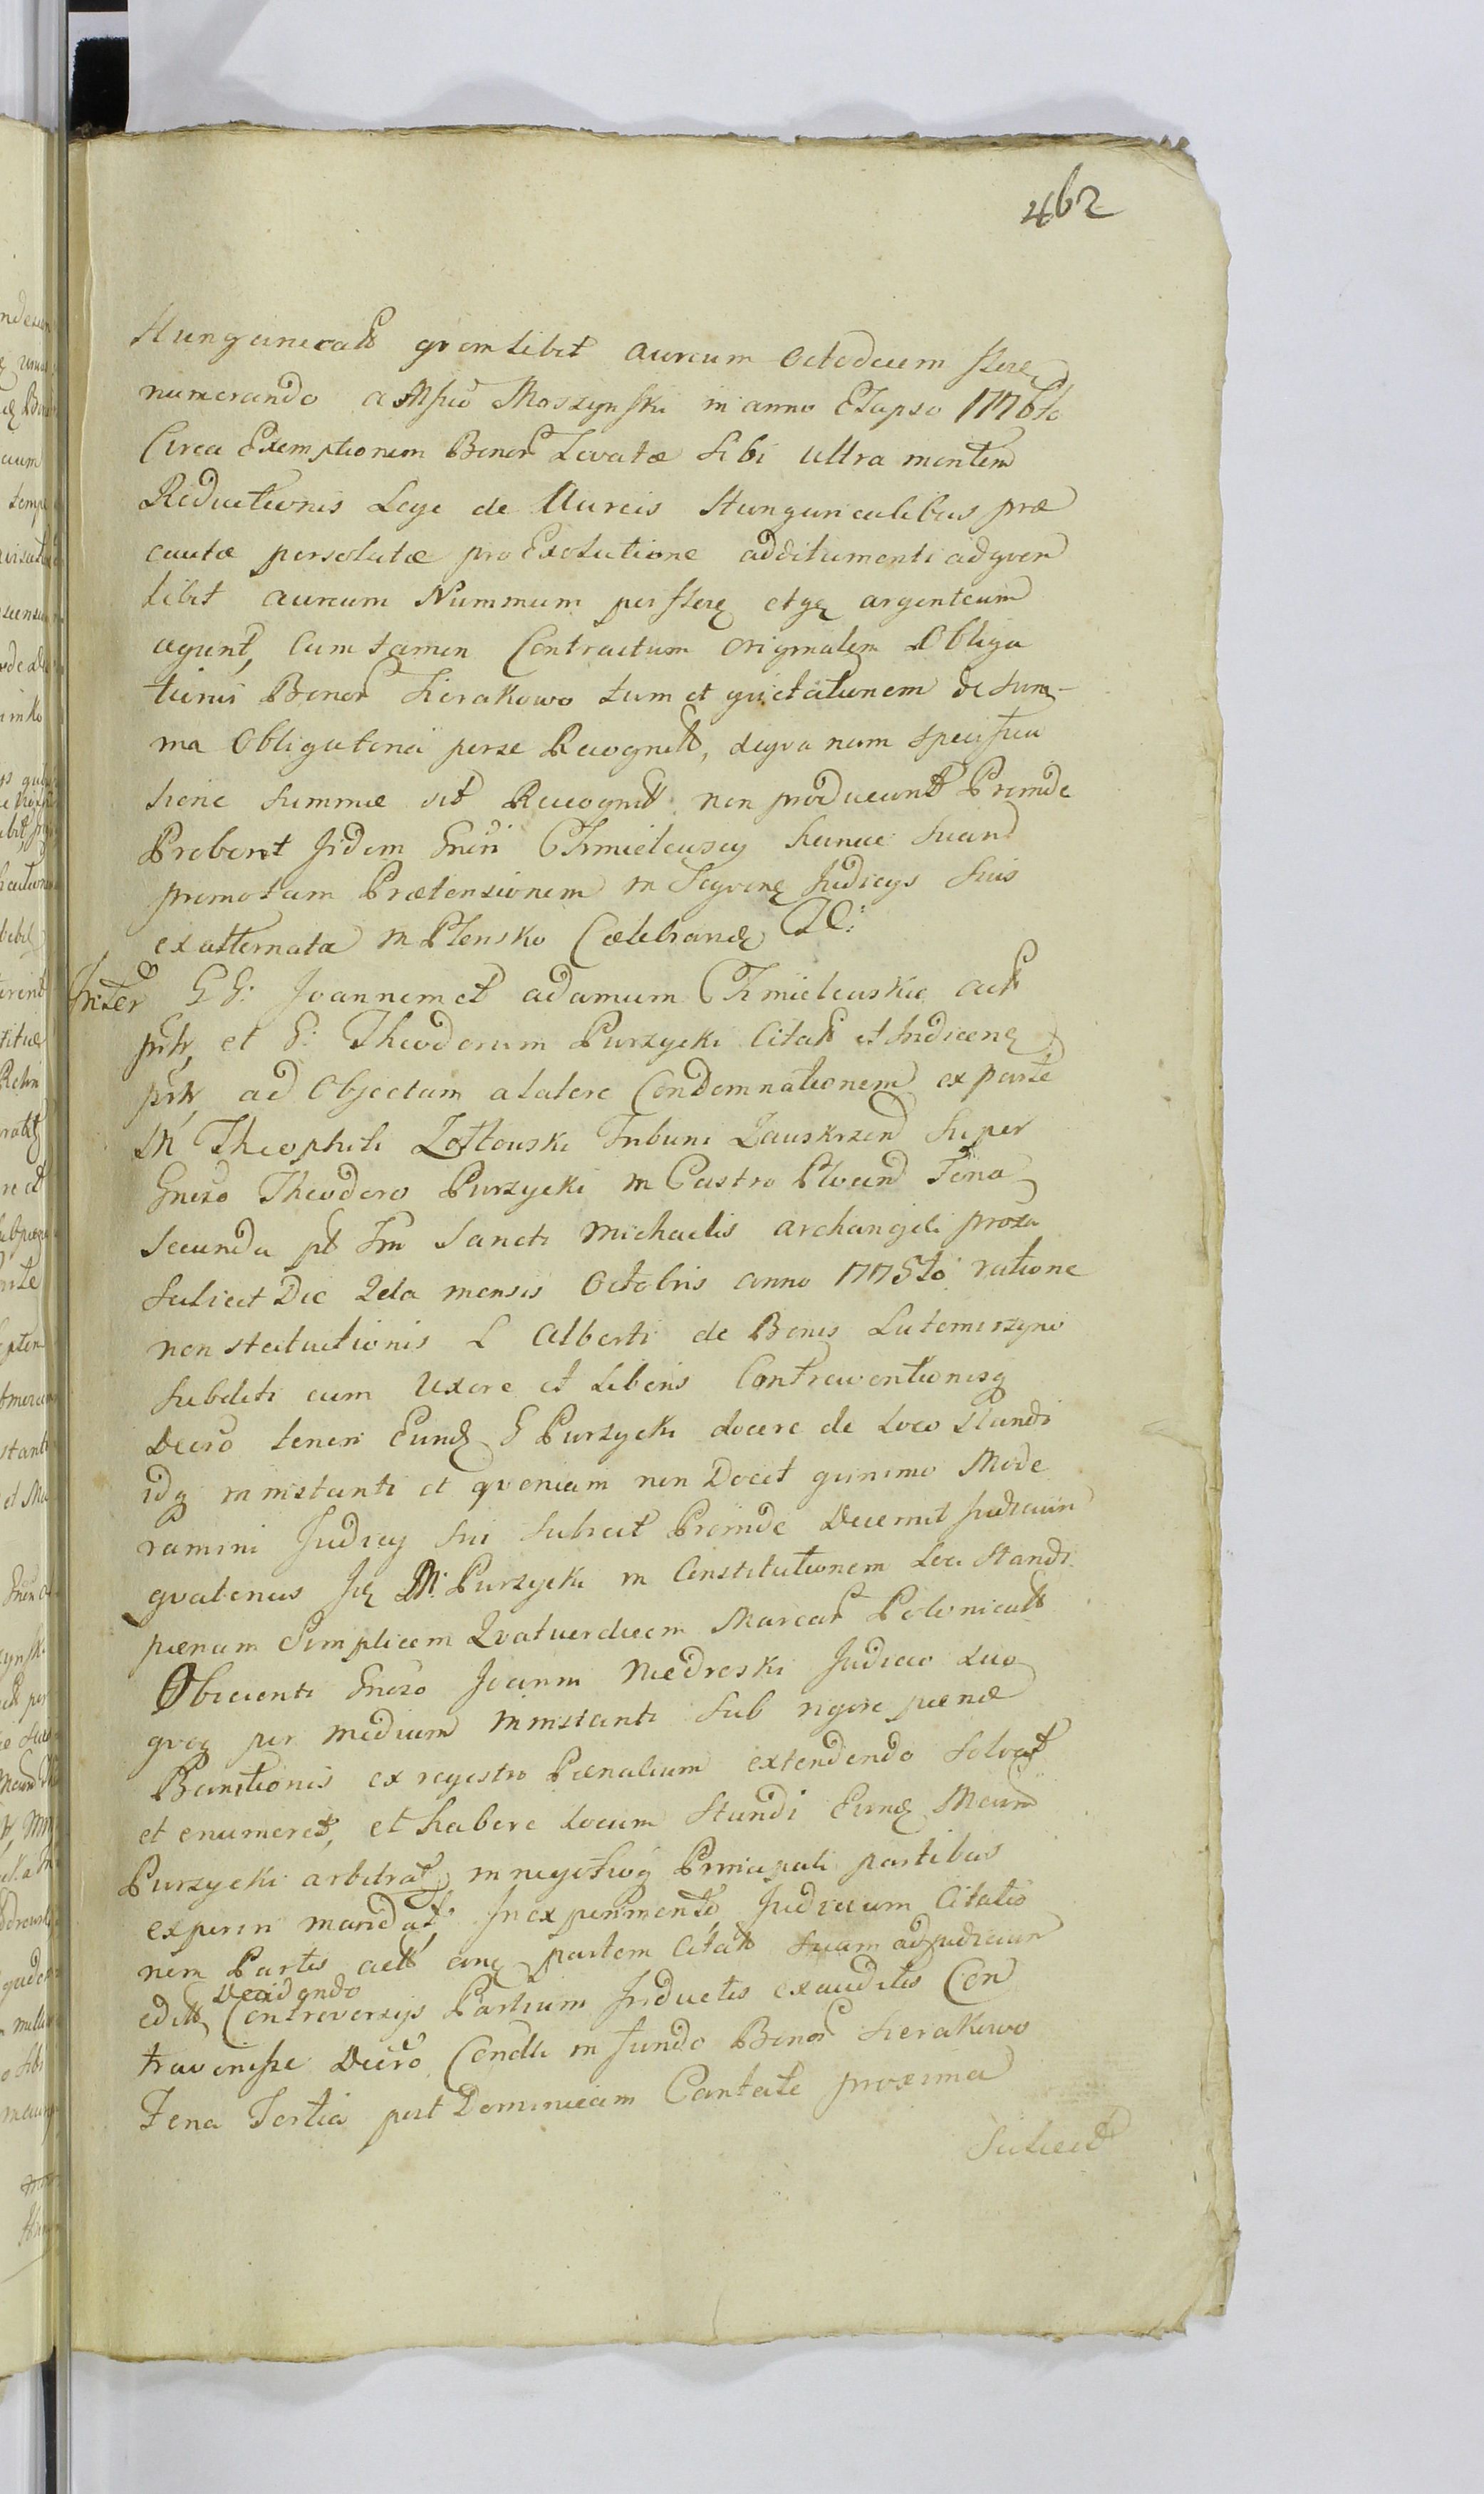 462
Hungaricall quemlibet aureum Octodecim flor
numerando a Mfico Moszynski in anno Elapso 1776to
Circa Exemptionem Bonor Levatæ sibi ultra mentem
Reductionis Lege de Aureis Hungaricalibus præ
cautæ persolutæ pro Exolutione additamenti ad quem
libet aureum Nummum per flor etgę argenteum
agunt, Cum tamen Contractum originalem Obliga
tionis Bonor Sierakowo tum et quietationem de sum-
ma Obligatoria per se Recognitt, de qua nam specifica
tione summæ sit Recognitt non producunt Proinde
Probent Jidem Gnri Chmielewscy hancce suam
promotam Prætensionem in Sequenę Judicys suis
ex alternata in Płonsko Celebrandę
Inter GG: Joannem et Adamum Chmielewskie act
prtr, et G: Theodorum Purzycki Citat et Judicenę
prtr, ad Objectam a latere Condemnationem ex parte
M Theophili Zołtowski Tribuni Zauskrzen Super
Gneso Theodoro Purzycki in Castro Plocen Feria
Secunda pt Fm Sancti Michaelis archangeli proxa
Scilicet Die 2da mensis Octobris anno 1775to ratione
non statuitionis L Alberti de Bonis Lutomirzyno
Subditi cum Uxore et Liberis Contraventionisq
Decro teneri Eundę G Purzycki docere de Loco Standi
idq in instanti et quoniam non Docet quinimo Mode
ramini Judicy sui Subicit Proinde Decernit Judicium
quatenus Jdę M: Purzycki in Constitutionem Loci Standi
pænam Simplicem Quatuordecim Marcar Polonicall
Obicienti Gneso Joanni Niedroski Judicio duo
quoq per medium in instanti sub rigore pænæ
Banitionis ex regestro Pænalium extendendo Solvat
et enumeret, et habere Locum Standi Eundę Meum
Purzycki arbitrat, in negotioq Principali partibus
experiri mandat, In experimento, Judicium Citatio
nem Partis actt cinę partem Citatt suam ad Judicium
editt Decidendo Controversys Partium Inductis exauditis Con
travenisse Decro Condli in fundo Bonor Sierakowo
Feria Tertia post Dominicam Cantate proxima
Scilicet